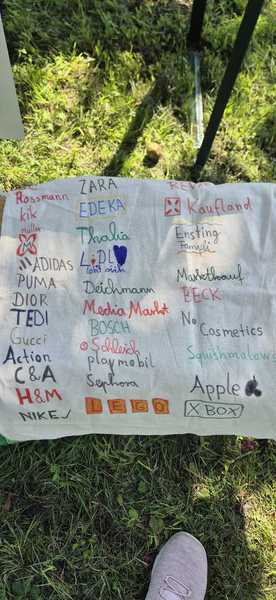 Rossmann
kik
müller
ADIDAS
PUMA
DIOR
TEDI
Gucci
Action
C&A
H&M
NIKE
ZARA
EDEKA
Thalia
LiDL
lohnt sich
Deichmann
Media Markt
BOSCH
Schleich
playmobil
Sephora
LEGO
REWE
Kaufland
Ernsting
Family
Marktkauf
BECK
No Cosmetics
Squishmalows
Apple
XBOX